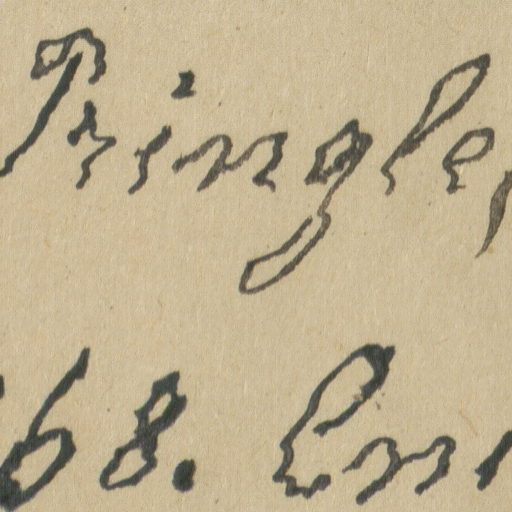 Pringle,
68.